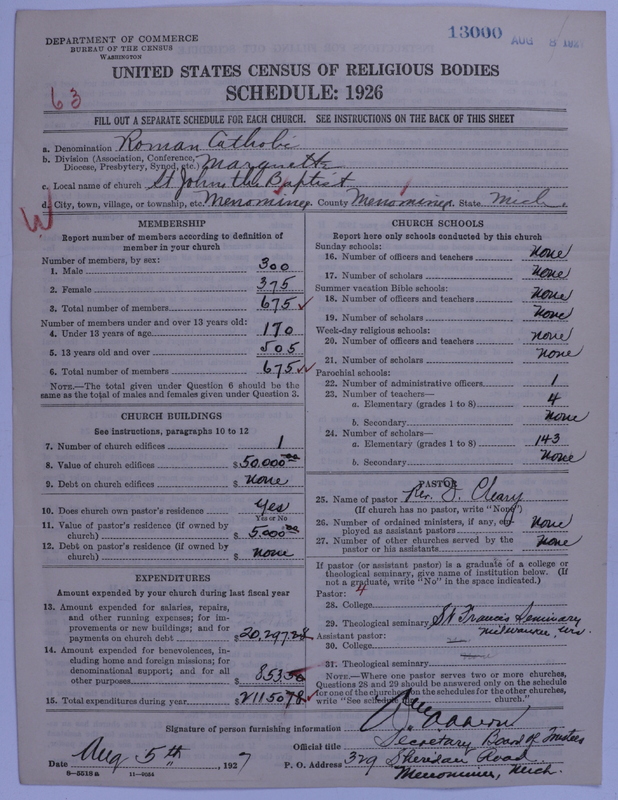 13000 AUG 8 192
DEPARTMENT OF COMMERCE
BUREAU OF THE CENSUS
WASHINGTON
UNITED STATES CENSUS OF RELIGIOUS BODIES
SCHEDULE: 1926
63
FILL OUT A SEPARATE SCHEDULE FOR EACH CHURCH. SEE INSTRUCTIONS ON THE BACK OF THIS SHEET
a. Denomination Roman Catholic
b. Division (Association, Conference, Diocese, Presbytery, Synod, etc.) Marquette
c. Local name of church St John the Baptist
d. City, town, village, or township, etc. Menominee County Menominee State Mich.
W
MEMBERSHIP
Report number of members according to definition of
member in your church
Number of members, by sex:
1. Male 300
2. Female 375
3. Total number of members 675
Number of members under and over 13 years old:
4. Under 13 years of age 170
5. 13 years old and over 505
6. Total number of members 675
NOTE.—The total given under Question 6 should be the
same as the total of males and females given under Question 3.
CHURCH BUILDINGS
See instructions, paragraphs 10 to 12
7. Number of church edifices 1
8. Value of church edifices $50,000.00
9. Debt on church edifices $ none
10. Does church own pastor's residence Yes
Yes or No
11. Value of pastor's residence (if owned by
church) $5,000.00
12. Debt on pastor's residence (if owned by
church) $ none
EXPENDITURES
Amount expended by your church during last fiscal year
13. Amount expended for salaries, repairs,
and other running expenses; for im-
provements or new buildings; and for
payments on church debt $20,297.28
14. Amount expended for benevolences, in-
cluding home and foreign missions; for
denominational support; and for all
other purposes $ 853.50
15. Total expenditures during year $21150.78
CHURCH SCHOOLS
Report here only schools conducted by this church
Sunday schools:
16. Number of officers and teachers None
17. Number of scholars None
Summer vacation Bible schools:
18. Number of officers and teachers None
19. Number of scholars None
Week-day religious schools:
20. Number of officers and teachers none
21. Number of scholars none
Parochial schools:
22. Number of administrative officers 1
23. Number of teachers—
a. Elementary (grades 1 to 8) 4
b. Secondary None
24. Number of scholars—
a. Elementary (grades 1 to 8) 143
b. Secondary None
PASTOR
25. Name of pastor Rev. J. Cleary
(If church has no pastor, write "None")
26. Number of ordained ministers, if any, em-
ployed as assistant pastors None
27. Number of other churches served by the
pastor or his assistants None
If pastor (or assistant pastor) is a graduate of a college or
theological seminary, give name of institution below. (If
not a graduate, write "No" in the space indicated.)
Pastor: 4
28. College
29. Theological seminary St Francis Seminary
Milwaukee, Wis.
Assistant pastor:
30. College
31. Theological seminary none
NOTE.—Where one pastor serves two or more churches,
Questions 28 and 29 should be answered only on the schedule
for one of the churches; on the schedules for the other churches,
write "See schedule church."
Signature of person furnishing information
Official title Secretary Board of Trustees
Date Aug 5th, 1927 P. O. Address 329 Sheridan Road
Menominee, Mich.
9-5519a 11-9664